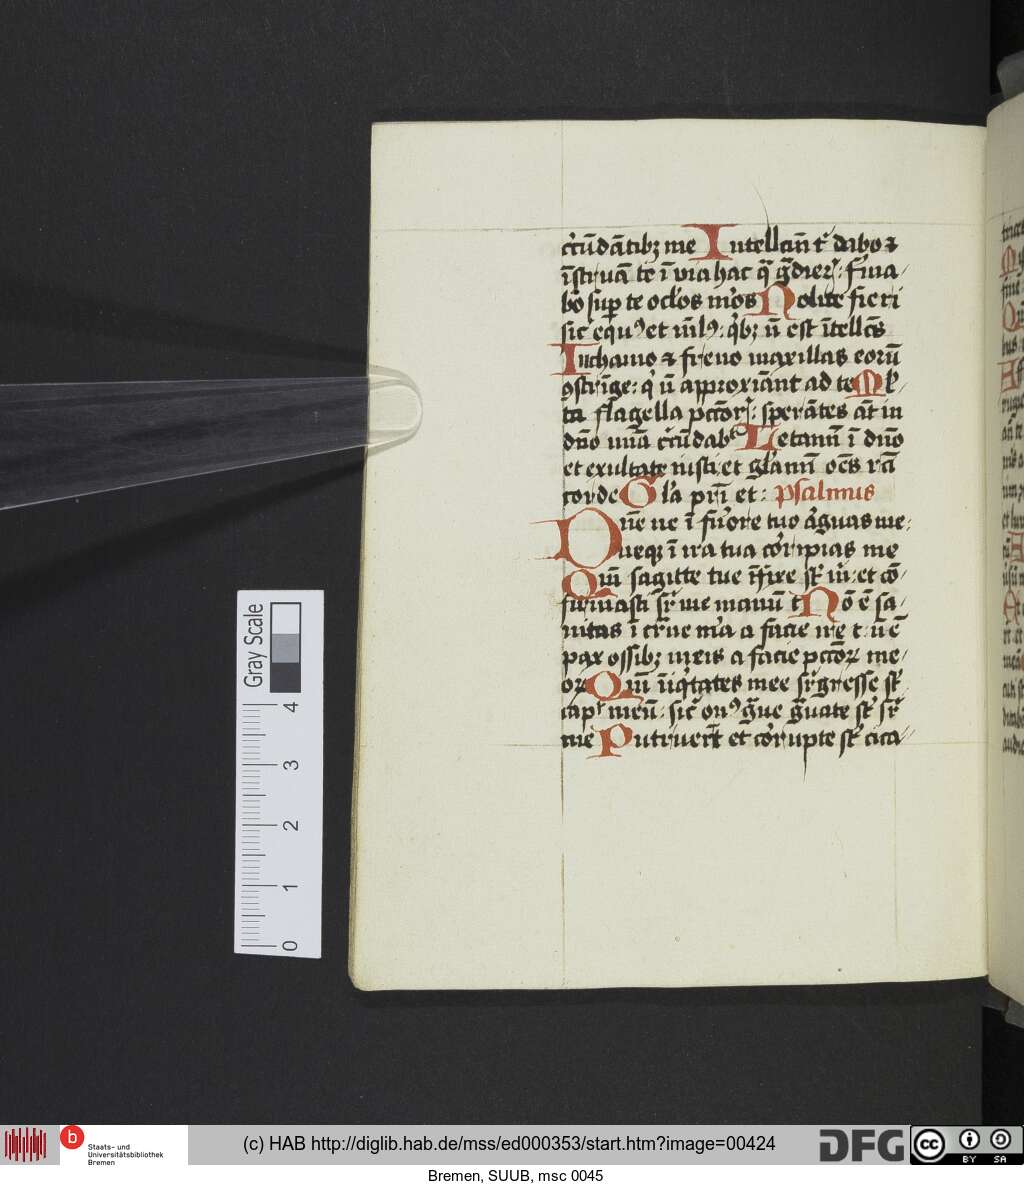 cc̄ūdātibꝫ me Intellcm̄ t̕ dabo ⁊
īstruā te ī via hac q̄ g̃dier̕ : firma/
bō suꝑ te oclos mos Nolite fieri
sic̄ equꝰ et ml̕ꝰ : q̄bꝫ n̄ est ītellcs̄
In chamo ⁊ freno maxillas eorū
ꝯstrīge : q̕ n̄ approxiānt ad te Ml̕/
ta flagella pccōr̕ : sperātes āt in
dn̄o mīa cc̄ūdabt̕ Letamī ī dn̄o
et exultate iusti et gl̄amī oēs rc̄i
corde Gl̄a pr̄i et : psalmus
Dn̄e ne ī furore tuo arguas me :
neqꝫ ī ira tua corripias me
Qm̄ sagitte tue īfixe st̄ m̄ : et cō/
firmasti sr̄ me manū t̄ Nō ē sa/
nitas ī carne mea a facie ire t̄ : n̄ ē
pax ossibꝫ meis a facie pccōꝝ me/
oꝝ Qm̄ īiq̕tates mee sr̄gresse st̄
cap̕ meū : sic̄ onꝰ g̃ue g̃uate st̄ sr̄
me Putruert̄ et corrupte st̄ cica/
Gray Scale
4
3
2
1
0
b
Staats- und
Universitätsbibliothek
Bremen
(c) HAB http://diglib.hab.de/mss/ed000353/start.htm?image=00424
DFG
cc
BY SA
Bremen, SUUB, msc 0045